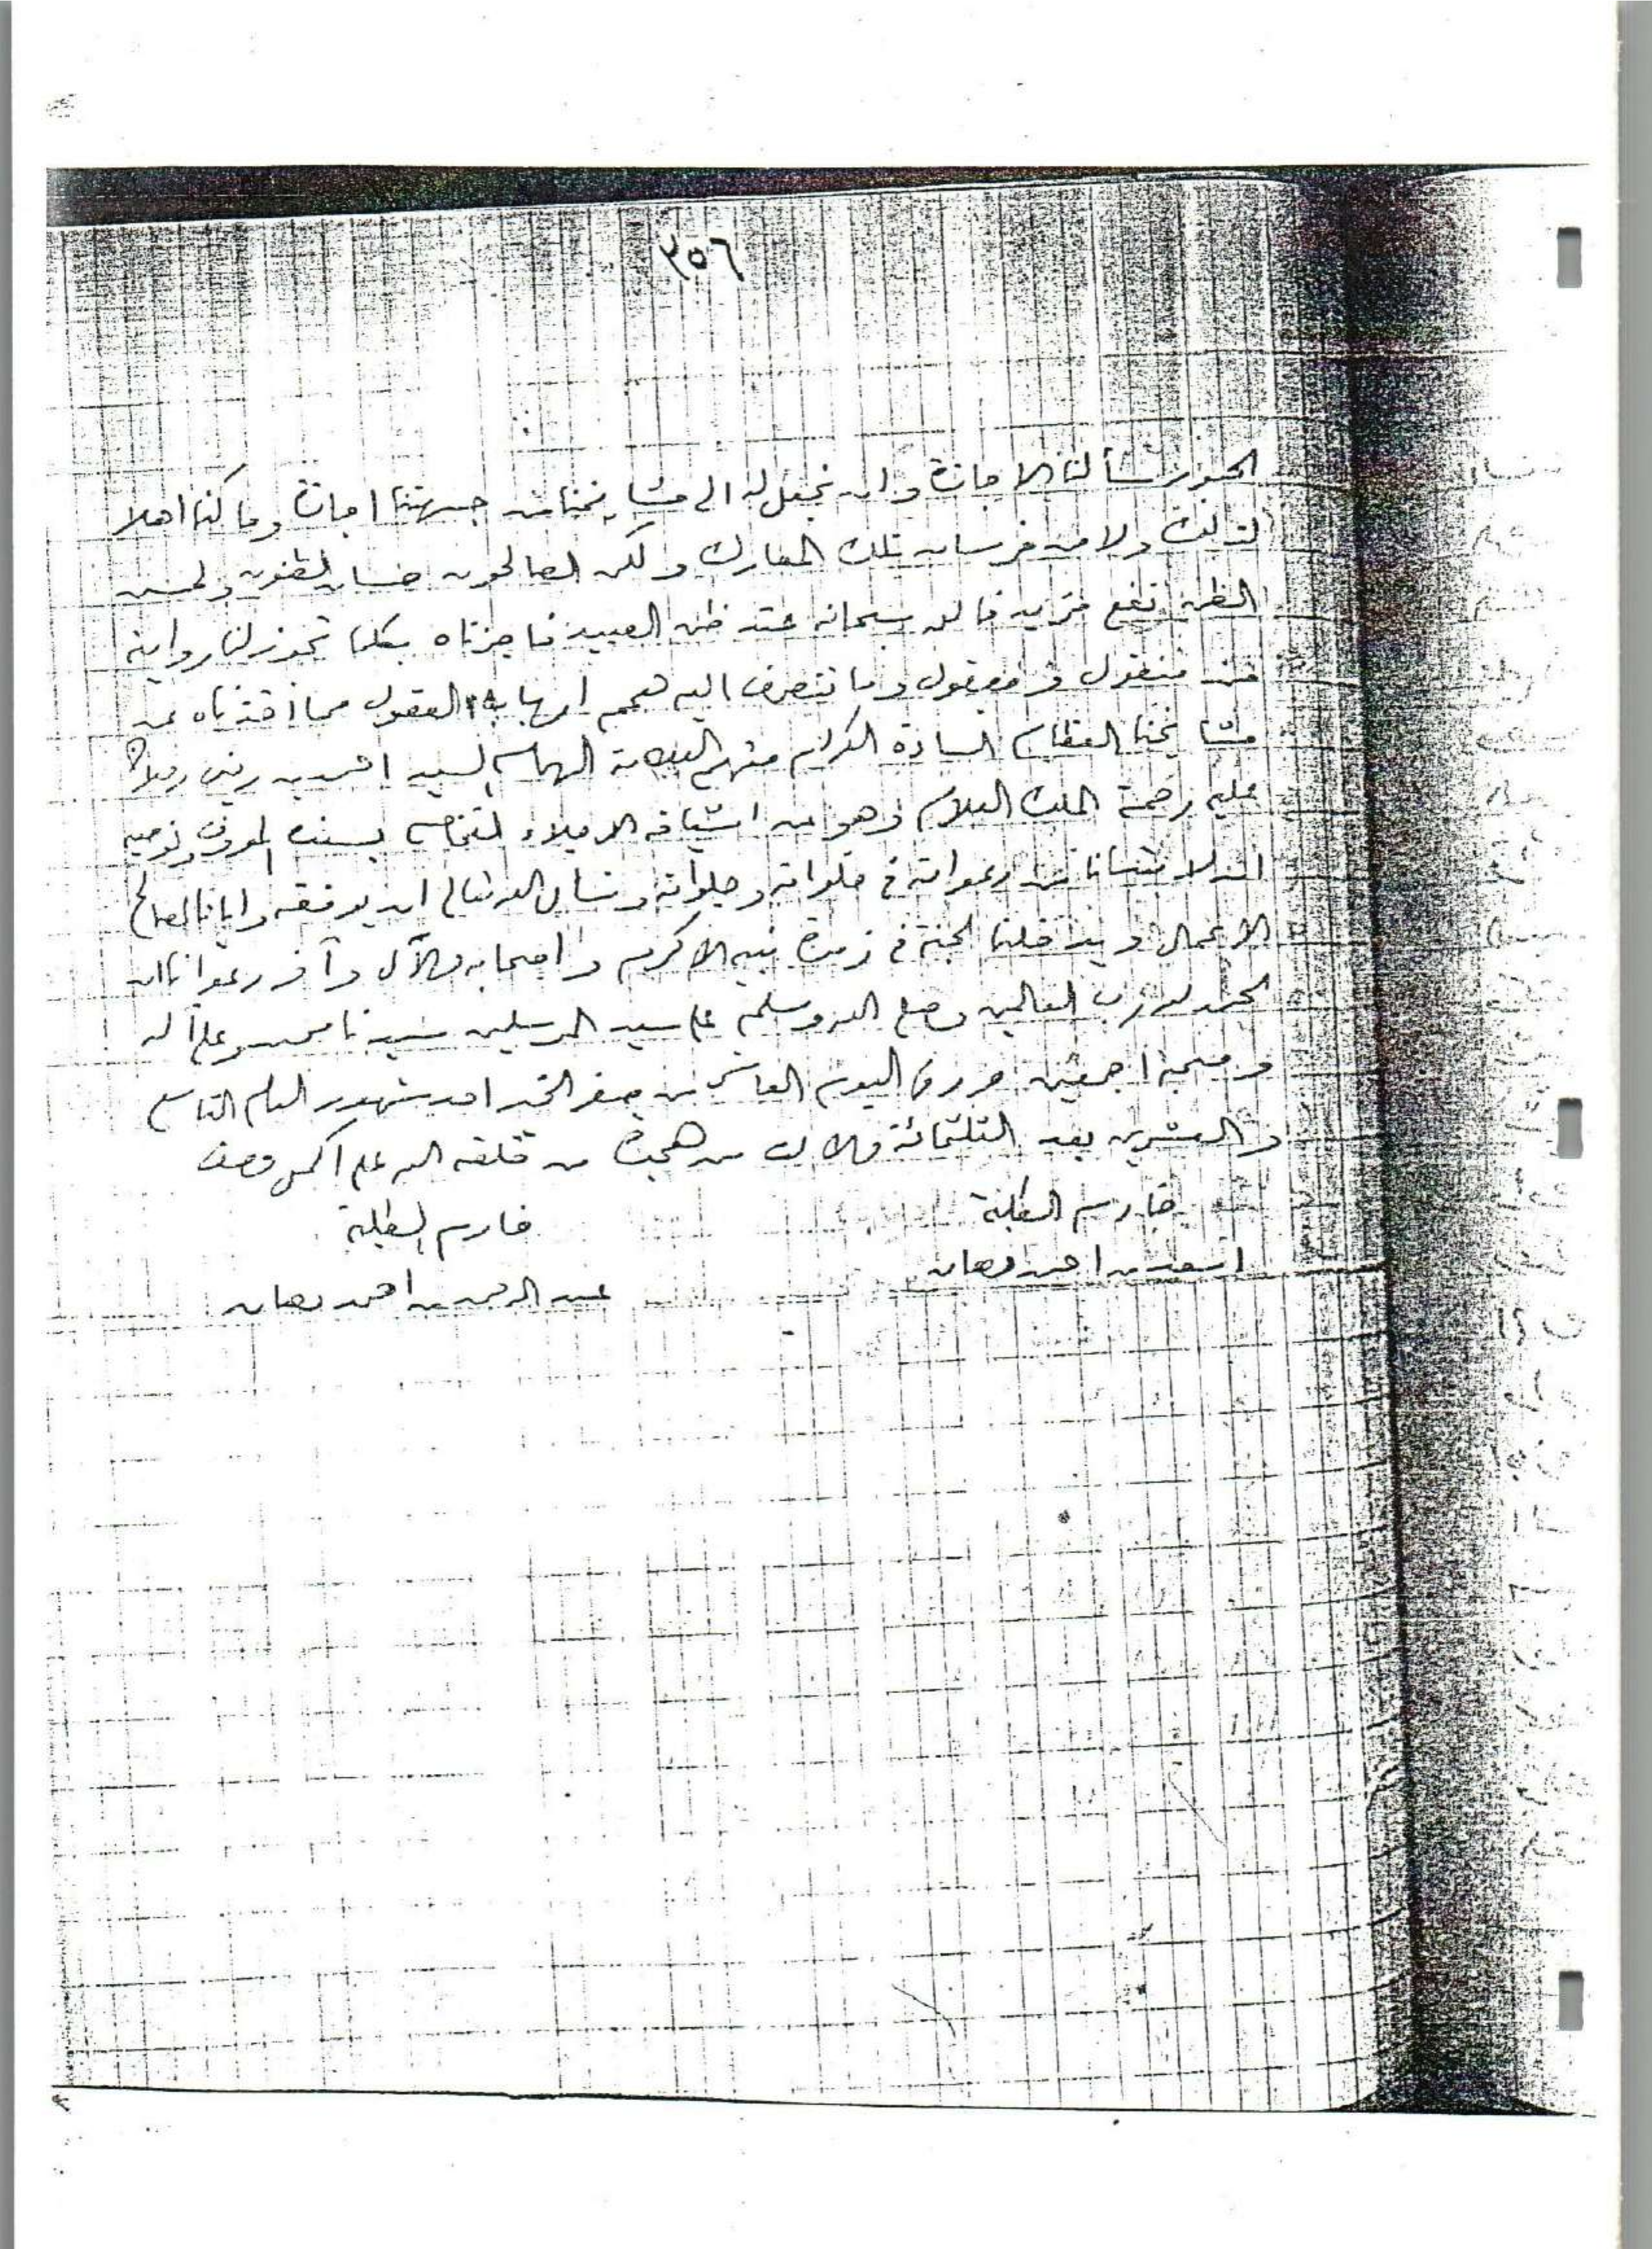 ٣٥٦
سألنا الاجازة وان نجعل له الى مشايخنا من جهتنا اجازة وما كنا اهلا
لذلك ولا من فرسان تلك المعارك ولكن الصالحون حسان الظنون ولحسن
الظن نفع مزيد فالله سبحانه عند ظن العبيد فاجزناه بكلما تجوز لنا روايته
من منقول ومعقول وما تنصرف اليه همم ارباب العقول مما اخذناه عن
مشايخنا العظام السادة الكرام منهم العلامة الهمام السيد احمد بن زيني دحلان
عليه رحمة الملك العلام وهو عن اشياخه الاجلاء بسنده المعروف ونوصيه
ان لا ينسانا من دعواته في خلواته وجلواته ونسال الله تعالى ان يوفقه وايانا لصالح
الاعمال ويدخلنا الجنة في زمرة نبيه الاكرم واصحابه والآل وآخر دعوانا ان
الحمد لله رب العالمين وصلى الله وسلم على سيد المرسلين سيدنا محمد وعلى آله
وصحبه اجمعين حرر في اليوم العاشر من صفر الخير احد شهور العام التاسع
والعشرين بعد الثلثمائة والالف من هجرة من خلقه الله على اكمل وصف
خادم الطلبة
خادم الطلبة
اسعد بن احمد دهان
عبد الرحمن بن احمد دهان